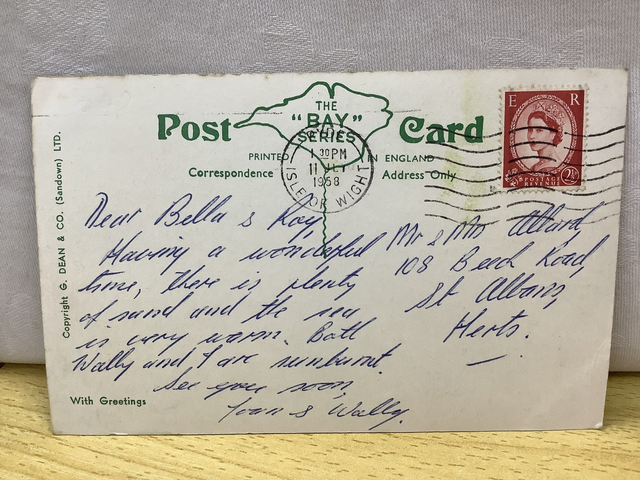 THE
"BAY"
SERIES
Post Card
PRINTED IN ENGLAND
Correspondence Address Only
1 30 PM
11
1958
ISLE OF WIGHT
E R
POSTAGE
REVENUE
2½
Copyright G. DEAN & CO. (Sandown) LTD.
Dear Bella & Roy,
Having a wonderful
time, there is plenty
of sand and the sea
is very warm. Both
Wally and I are sunburnt.
See you soon,
Joan & Wally.
With Greetings
Mr & Mrs Allard,
108 Beech Road,
St Albans,
Herts.